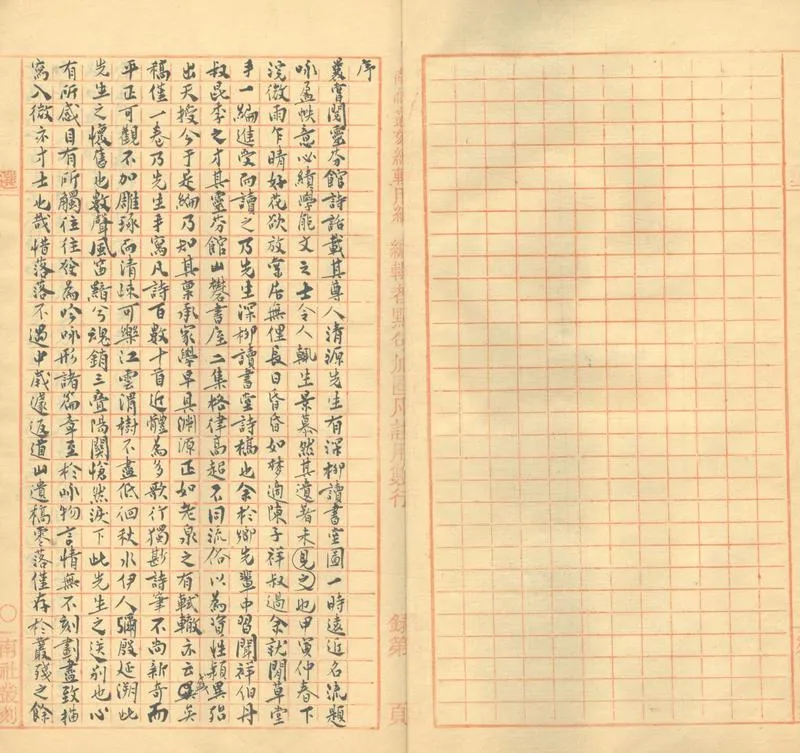 序
曩嘗閱靈芬館詩話載其尊人清源先生有深柳讀書堂圖一時遠近名流題
咏盈帙意必績學能文之士令人輒生景慕然其遺著未見之也甲寅仲春下
浣微雨乍晴好花欲放棠居無俚長日昏昏如梦適陳子祥叔過余就閒草堂
手一編進受而讀之乃先生深柳讀書堂詩稿也余於鄉先輩中習聞祥伯丹
叔昆季之才其靈芬館山礬書屋二集格律高超不同流俗以為資性穎異殆
出天授今于是編乃知其稟承家學早具淵源正如老泉之有軾轍亦云盛矣
稿僅一卷乃先生手寫凡詩百數十首近體為多歌行獨尠詩筆不尚新奇而
平正可觀不加雕琢而清疎可樂江雲渭樹不盡低徊秋水伊人彌殷延溯此
先生之懷舊也數聲風笛黯兮魂銷三疊陽關愴然淚下此先生之送別也心
有所感目有所觸往往發為吟咏形諸篇章至於咏物言情無不刻劃盡致描
寫入微亦才士也哉惜落落不遇中歲遽返道山遺稿零落僅存於叢殘之餘
選
南社叢刻
編輯者點句加圈凡註用雙行
錄第
頁